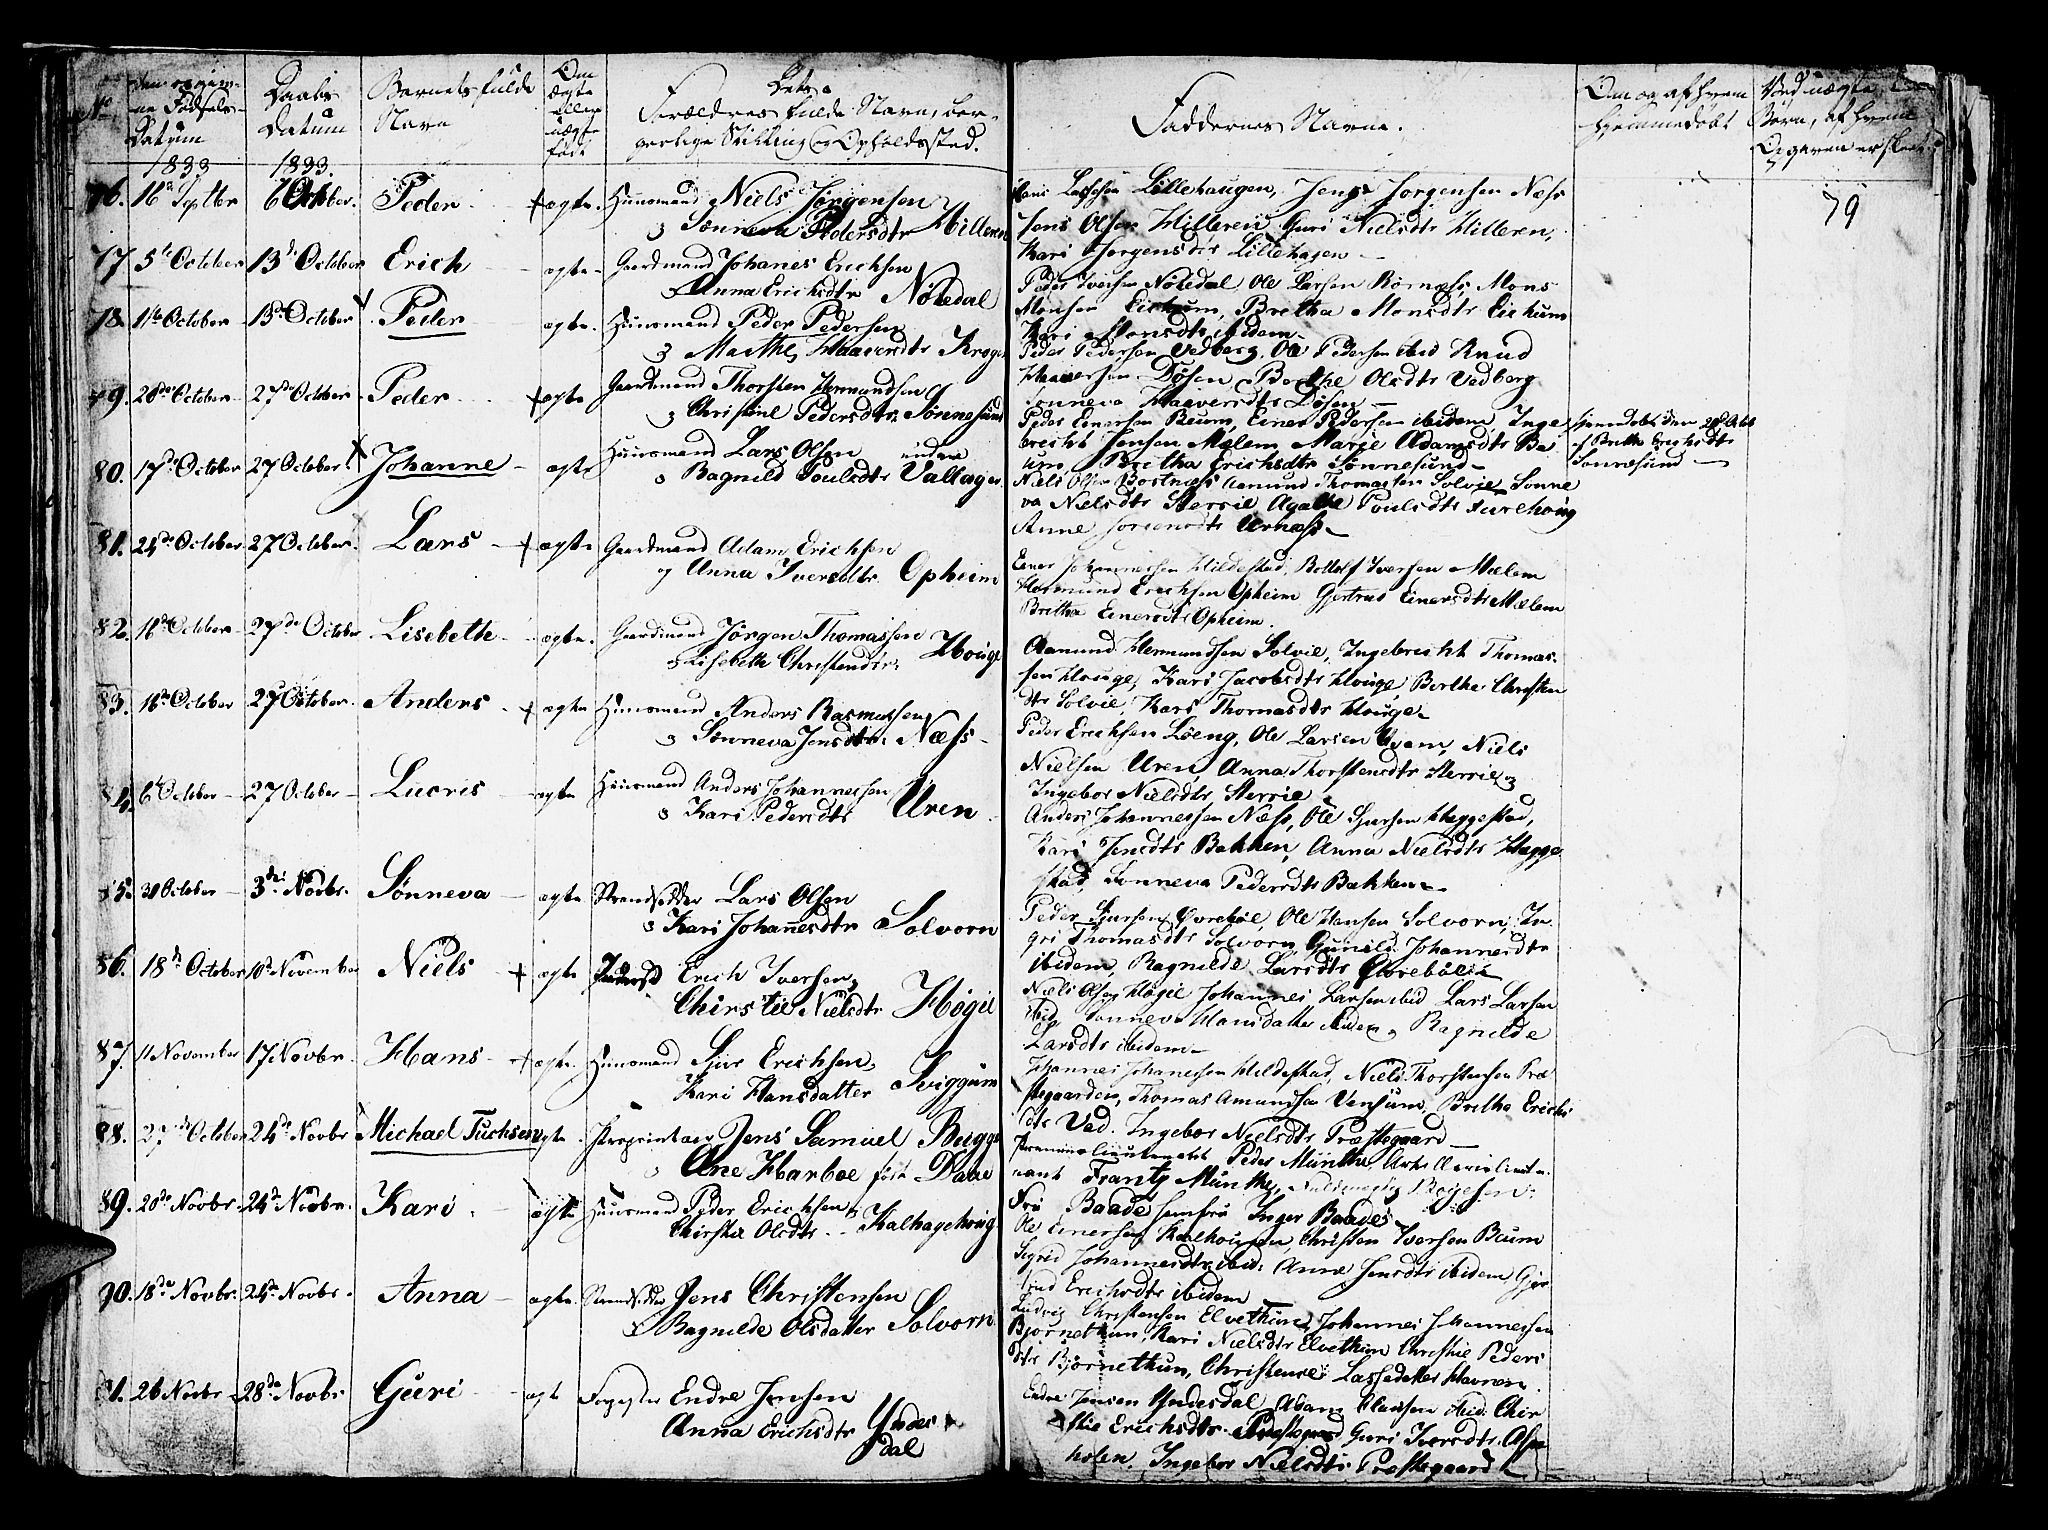 No
Datum
Daabs
Datum
Barnets fulde
Navn
Om
ægte
eller
uægte
født
Forældres fulde Navn, bor-
gerlige Stilling og Opholdssted.
Faddernes Navne.
Om og af hvem
hjemmedøbt
1833
1833.
79
76. 16 Septbr 6 Octbr. Peder ægte. Huusmand Niels Jørgensen
Sønneva Pedersdtr Hilleren
Lassesen Lillehaugen, Jens Jørgensen Næss
Jens Olsen Hilleren, Guri Nielsdtr Hilleren,
Kari Jørgensdtr Lillehagen
77. 5te October 13de October Erich ægte Gaardmand Johanes Erichsen
Anna Erichsdtr Nøtedal
Peder Iversen Nøtedal, Ole Larsen Rørnæss, Mons
Monsen Eickum, Brethe Monsdtr Eickum
Kari Monsdtr ibidem
78. 11te October 13de October Peder ægte. Huusmand Peder Pedersen
Marthe Haaversdtr Kroge
Peder Pedersen Vedberg, Ole Pedersen ibid Knud
Haaversen Døsen, Berthe Olsdtr Vedberg
Sønneva Haaversdtr Døsen
79. 20de October 27de October Peder ægte Gaardmand Thorsten Hermundsen
Christine Pedersdtr Sønnesund
Peder Einersen Beum, Einer Pedersen ibidem, Inge
brecht Jensen Mælem, Marie Adamsdtr Be
um, Bretha Erichsdtr Sønnesund
af Bretha Erichsdtr
Sønnesund
80. 17de October 27 October. Johanne ægte Huusmand Lars Olsen
Ragnild Poulsdtr Vallager
Niels Olsen Bostnæss Aamund Thomassen Solvie, Sønne
va Nielsdtr Herrie Agathe Poulsdtr
Anne Urnæss
81. 24de October 27 October. Lars ægte Gaardmand Adam Erichsen
og Anna Iversdtr. Opheim
Einer Johannessen Hildestad, Bottolf Iversen Mælem
Hermund Erichsen Opheim Gjertrud Einersdtr Mælem
Brithe Einersdtr Opheim.
82. 16de October 27de October Lisebethe ægte. Gaardmand Jørgen Thomassen
Lisebeth Christensdtr Houge
Aamund Hermundsen Solvie, Ingebrecht Thomas-
sen Houge, Kari Jacobsdtr Houge, Berthe Christen
dtr Solvie, Kari Thomasdtr Houge
83. 16de October 27 October. Anders ægte Huusmand Anders Rasmussen
Sønneva Jensdtr Næss
Peder Erichsen Løeng, Ole Larsen Kvam, Niels
Nielsen Uren, Anna Thorstensdtr Herrie og
Ingebor Nielsdtr Herrie
84. 6te October 27 October Lucris ægte Huusmand Anders Johannessen
Kari Pedersdtr Uren
Anders Johannessen Næss, Ole Sjursen Heggestad,
Kari Jensdtr Bakken, Anna Nielsdtr Hegge
stad, Sønneva Pedersdtr Bakken
85. 30 October 3de Novbr. Sønneva ægte Strandsidder Lars Olsen
Kari Johannesdtr Solvorn
Peder Sjursen Øvrebøe, Ole Hansen Solvorn, In
gri Thomasdtr Solvorn, Gunild Johannesdtr
ibidem, Ragnilde Larsdtr Øvrebøe
86. 18de October 10de November Niels ægte Erich Iversen,
Chirstie Nielsdtr Høgie
Niels Olsen Høgie Johannes Larsen ibid Lars Larsen
ibid, Sønneva Hansdatter ibidem og Ragnilde
Larsdtr ibidem
87. 11 November 17 Novbr. Hans ægte. Huusmand Sjur Erichsen,
Kari Hansdatter Sviggum
Johannes Johanesen Hildestad, Niels Thorstensen Præ
stegaarden, Thomas Amundsen Vensum, Brithe Erichs
dtr Vad. Ingebor Nielsdtr Præstegaard
88. 27de October 24de Novbr Michael Fuchsen ægte. Proprietær Jens Samuel Bugge
Ane Harboe født Daae
Premierlieutenant Peder Münthe Artillerielieute-
nant Frantz Münthe, Bøgesen
Frü Baade Jomfrü Inger Baade
89. 20de Novbr. 24de Novbr. Kari ægte Huusmand Peder Erichsen
Chirstie Olsdtr Kalhagehoug
Ole Einersen Kalhougen, Christen Iversen Beum
Sigrid Johannesdtr ibid. Anne Jensdtr ibidem Gjer
trud Erichsdtr ibidem
90. 18de Novbr. 24de Novbr. Anna ægte. Strandsidder Jens Christensen
Ragnilde Olsdatter Solvorn
Ludvig Christensen Elvethun, Johannes Johannessen
Bjørnethun, Kari Nielsdtr Elvethun Christie Peders
dtr Bjørnethun, Christense Lassedatter Havnen.
91. 26 Novbr 28de Novbr Guri ægt Endre Jensen
Anna Erichsdtr Yndes
dal
Endre Jensen Yndesdal, Adam Clausen ibid. Chir
stie Erichsdtr. Præstegaard Guri Iversdtr. Aspe
holen. Ingebor Nielsdtr Præstegaard